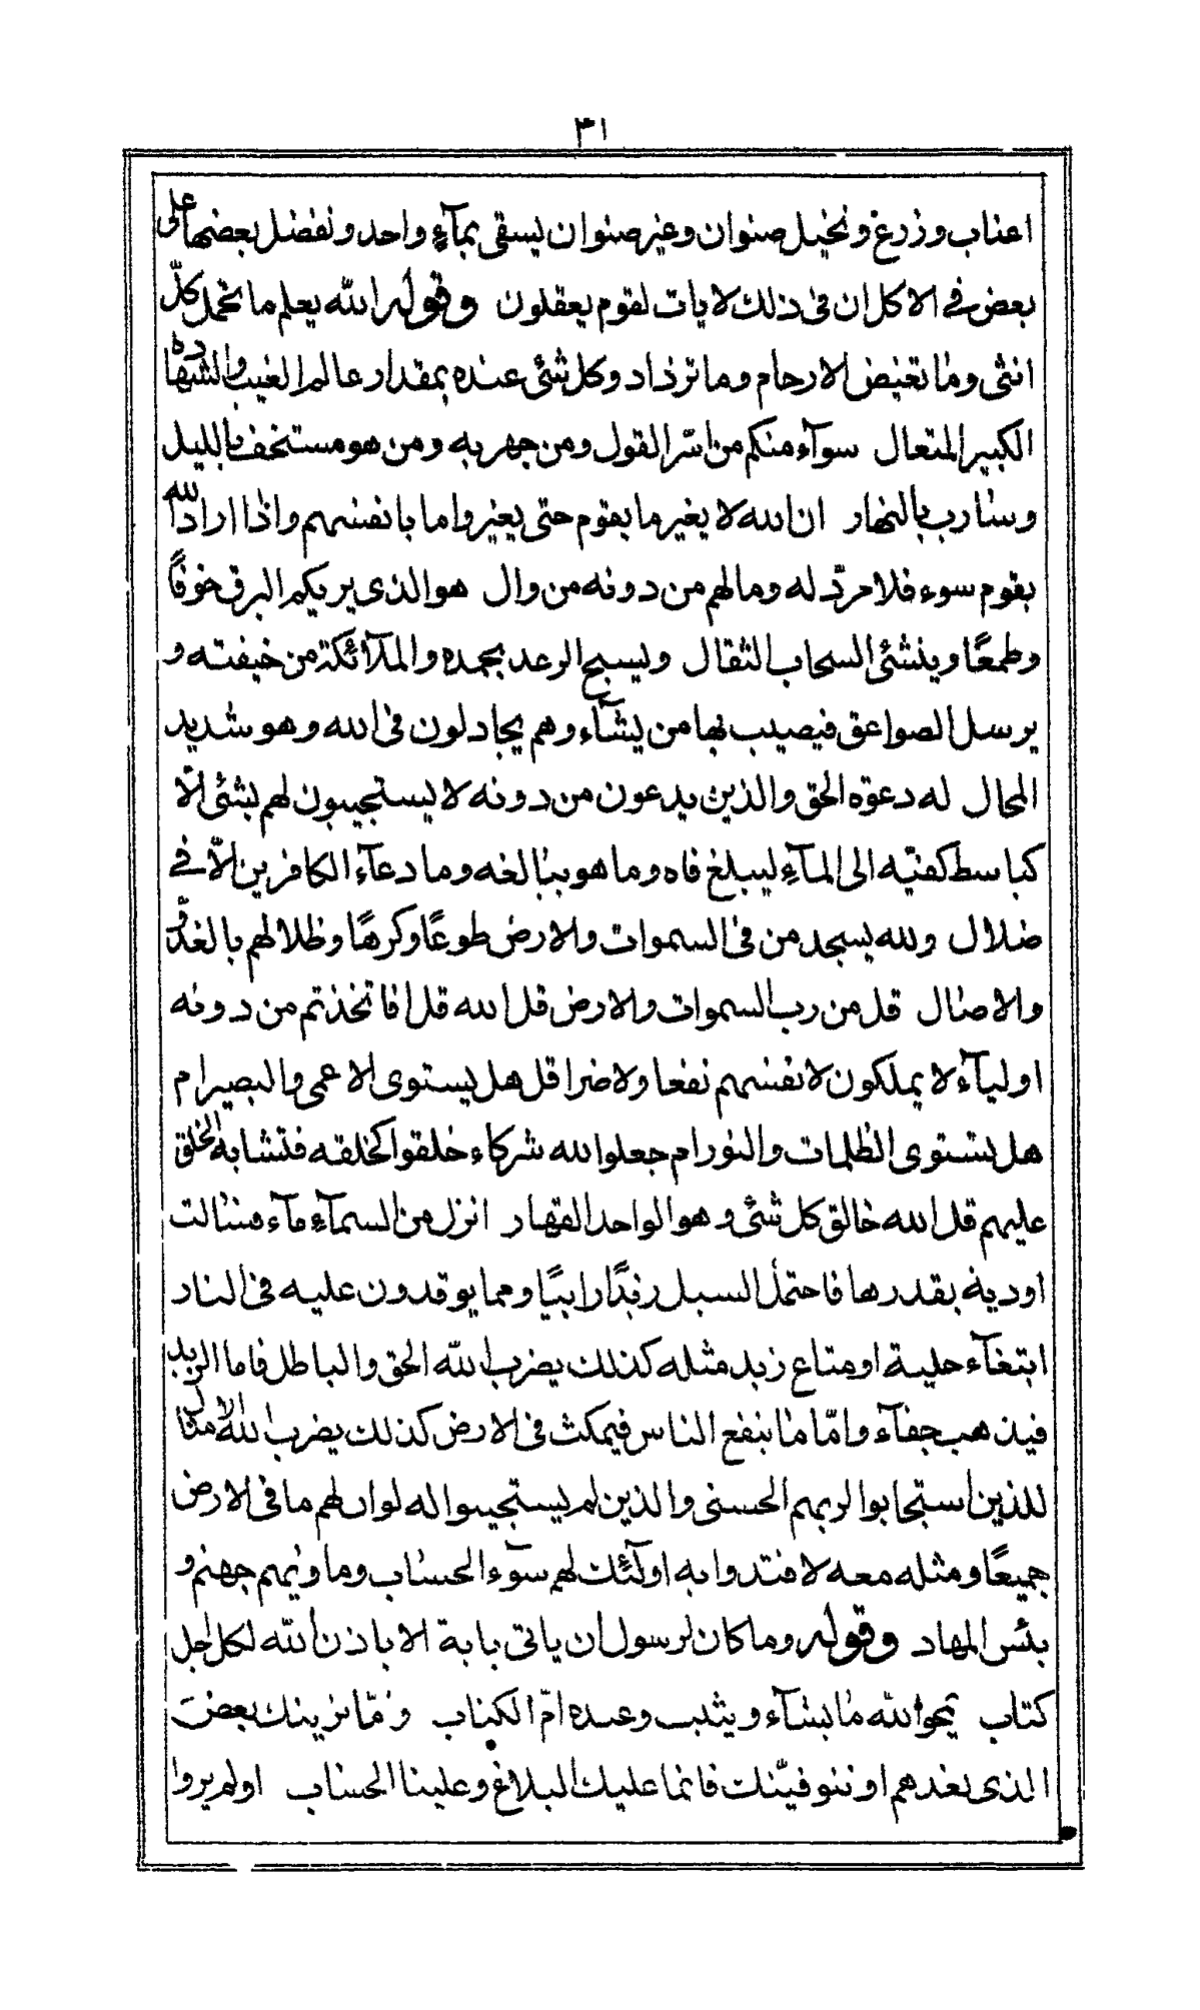 ٣١
اعناب وزرع ونخيل صنوان وغير صنوان يسقى بمآءٍ واحد ونفضل بعضها على
بعض في الاكل ان في ذلك لايات لقوم يعقلون وقوله الله يعلم ما تحمل كلّ
انثى وما تغيض الارحام وما تزداد وكل شئ عنده بمقدار عالم الغيب والشهادة
الكبير المتعال سوآء منكم من اسّر القول ومن جهر به ومن هو مستخف بالليل
وسارب بالنهار ان الله لا يغير ما بقوم حتى يغيروا ما بانفسهم واذا اراد الله
بقوم سوء فلا مردّ له وما لهم من دونه من وال هو الذى يريكم البرق خوفًا
وطمعًا وينشئ السحاب الثقال ويسبح الرعد بحمده والملآئكة من خيفته و
يرسل الصواعق فيصيب بها من يشآء وهم يجادلون في الله وهو شديد
المحال له دعوة الحق والذين يدعون من دونه لا يستجيبون لهم بشئ الّا
كباسط كفيّه الى المآءِ ليبلغ فاه وما هو ببالغه وما دعآء الكافرين الّا في
ضلال ولله يسجد من في السموات والارض طوعًا وكرهًا وظلالهم بالغدّو
والاصال قل من رب السموات والارض قل الله قل افاتخذتم من دونه
اوليآء لا يملكون لانفسهم نفعا ولا ضرا قل هل يستوى الاعمى والبصير ام
هل يستوى الظلمات والنور ام جعلوا لله شركاء خلقوا كخلقه فتشابه الخلق
عليهم قل الله خالق كل شئ وهو الواحد القهار انزل من السمآءِ مآء فسالت
اودية بقدرها فاحتمل السيل زبدًا رابيًا ومما يوقدون عليه في النار
ابتغآء حلية او متاع زبد مثله كذلك يضرب الله الحق والباطل فاما الزبد
فيذهب جفآء وامّا ما ينفع الناس فيمكث في الارض كذلك يضرب الله الامثال
للذين استجابوا لربهم الحسنى والذين لم يستجيبوا له لو ان لهم ما في الارض
جميعًا ومثله معه لافتدوا به اولٓئك لهم سوٓء الحساب وماويهم جهنم و
بئس المهاد وقوله وما كان لرسول ان ياتى باية الا باذن الله لكل اجل
كتاب يمحو الله ما يشآء ويثبت وعنده امّ الكتاب وامّا نرينك بعض
الذى نعدهم او نتوفيّنك فانما عليك البلاغ وعلينا الحساب اولم يروا